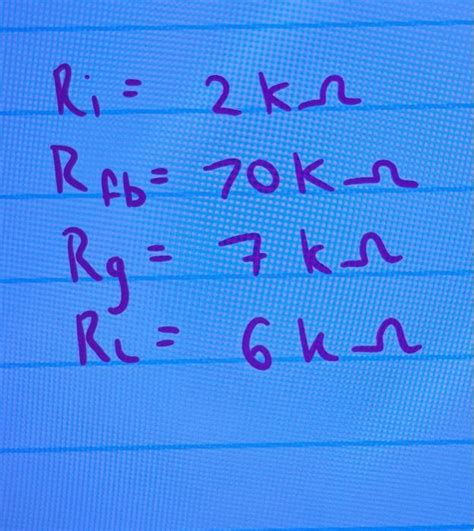 Ri = 2 kΩ
Rfb = 70 kΩ
Rg = 7 kΩ
RL = 6 kΩ